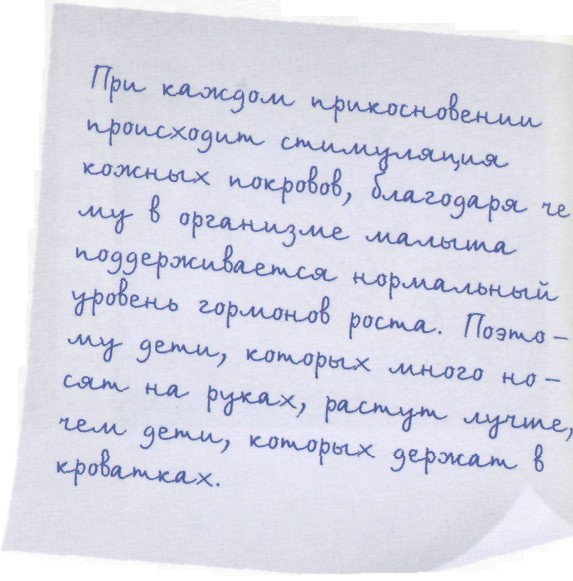 При каждом прикосновении
происходит стимуляция
кожных покровов, благодаря че
му в организме малыша
поддерживается нормальный
уровень гормонов роста. Поэто–
му дети, которых много но–
сят на руках, растут лучше,
чем дети, которых держат в
кроватках.